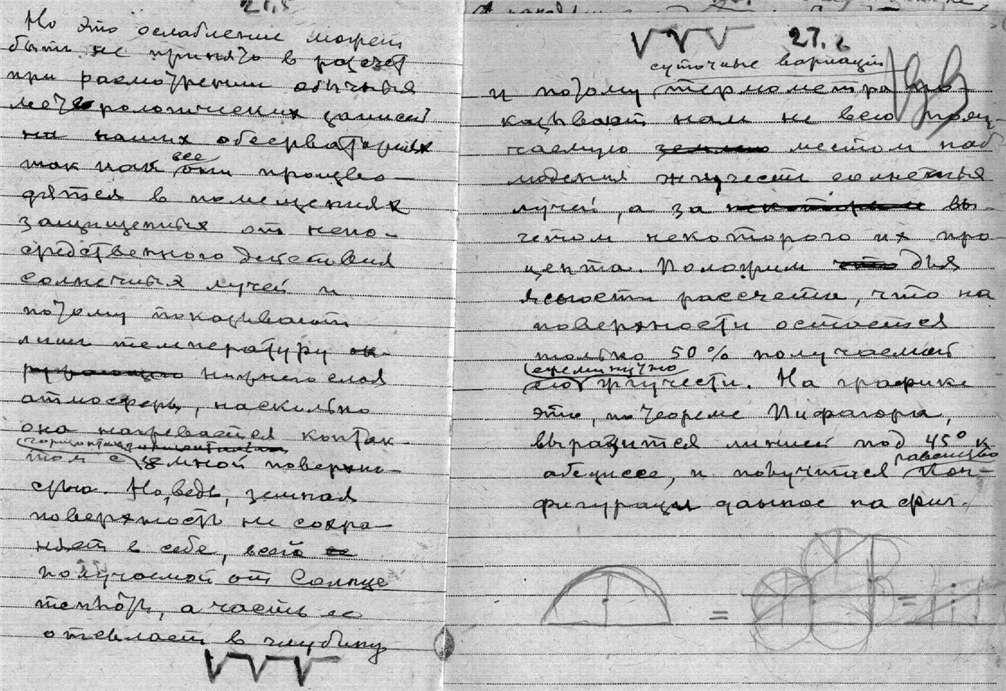 Но это ослабление может
быть не принято в расчет
при рассмотрении обычных
метеорологических записей
на наших обсерваториях
так как все они произво-
дятся в помещениях
защищенных от непо-
средственного действия
солнечных лучей и
потому показывают
лишь температуру ок-
ружающего нижнего слоя
атмосферы, насколько
она нагревается контак-
том с земной поверхно-
стью. Но, ведь, земная
поверхность не сохра-
няет в себе, всей
получаемой от Солнца
теплоты, а часть ее
отсылает в глубину
27.
суточные вариации
и потому термометры по-
казывают нам не всю полу-
чаемую землею местом наб
людения жгучести солнечных
лучей, а за некоторым вы-
четом некоторого их про
цента. Положим что для
ясности рассчета, что на
поверхности остается
только 50% получаемой
ежеминутно
ею жгучести. На графике
это, по теореме Пифагора,
выразится линией под 45° к
абсциссе, и получится равенство кон-
фигураций данное на фиг.
= =